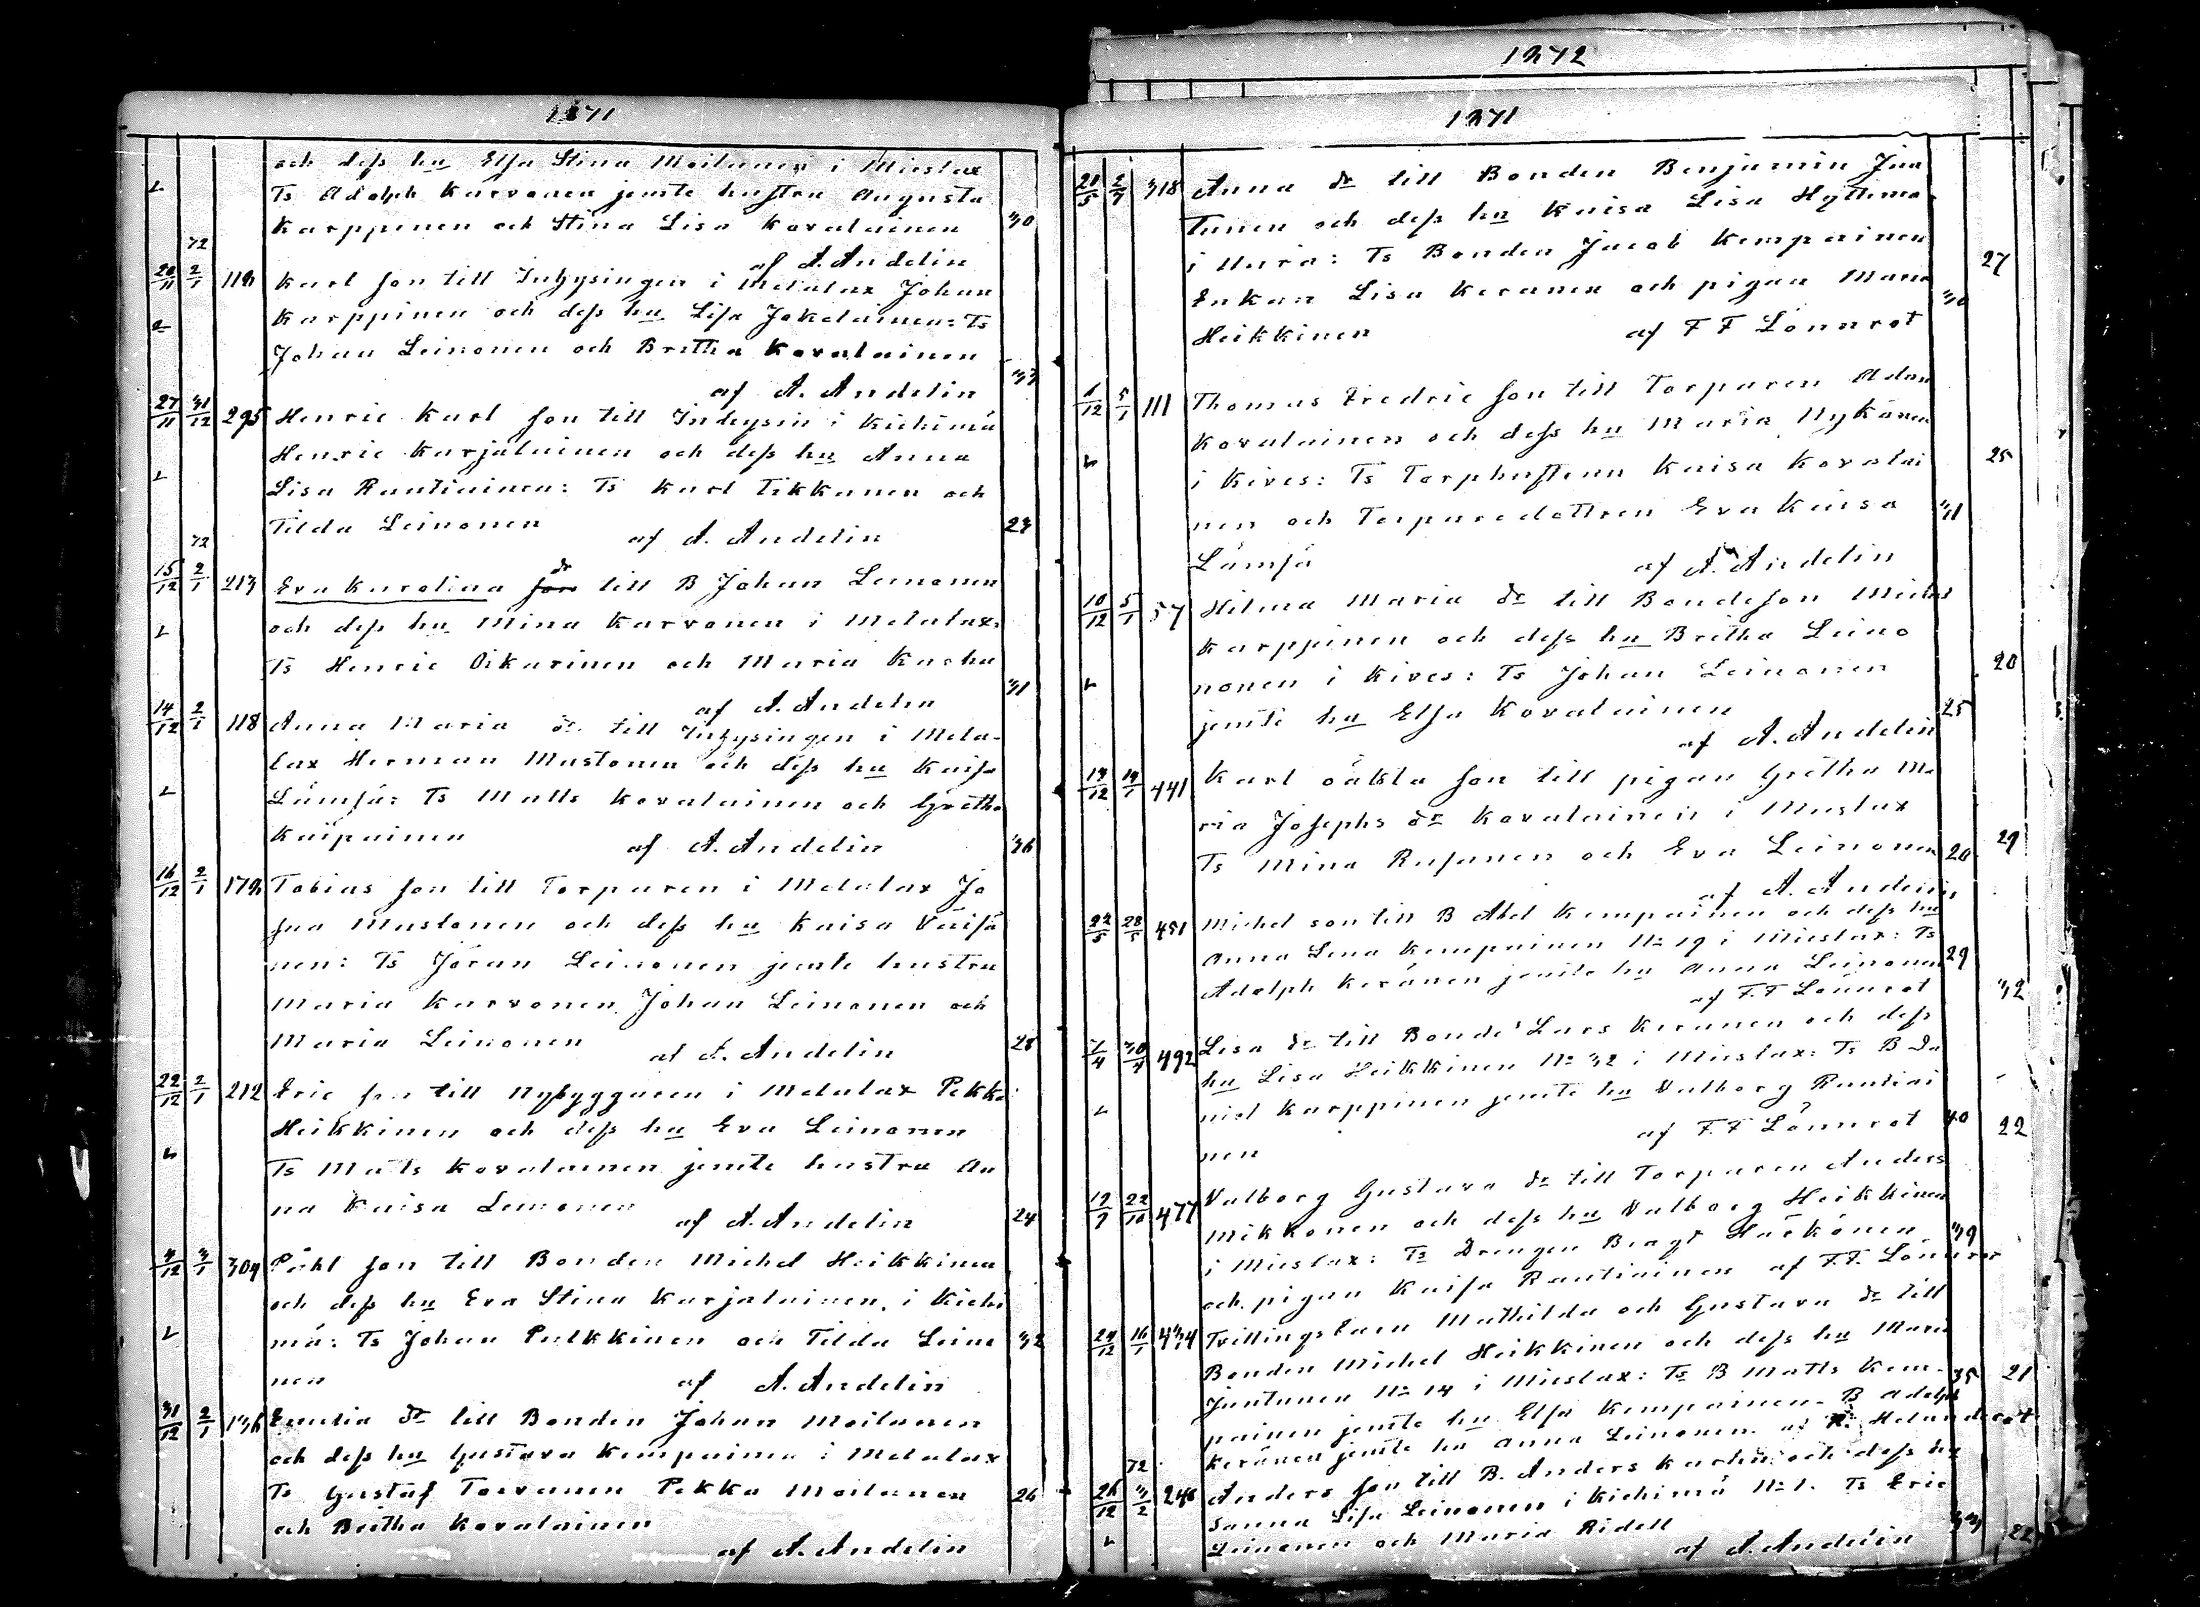 1871
och dess hu Elsa Stina Moilanen i Mieslax
Ts Adolph Karvonen jemte hustru Augusta
Karppinen och Stina Lisa Kovalainen 30
af A. Andelin
72
20/11 2/1 118 Karl son till Inhysingen i Melalax Johan
Karppinen och dess hu Lisa Jokelainen: Ts
Johan Leinonen och Britha Kovalainen
af A. Andelin 33
27/11 31/12 295 Henric Karl son till Inhysin i Kiehimä
Henric Karjalainen och dess hu Anna
Lisa Rautiainen: Ts Karl Tikkanen och
Tilda Leinonen af A. Andelin 23
72
15/12 2/1 213 Eva Karolina dr till B Johan Leinonen
och dess hu Mina Karvonen i Melalax:
Ts Henric Oikarinen och Maria Karhu
af A. Andelin 31
14/12 2/1 118 Anna Maria dr till Inhysingen i Mela-
lax Herman Mustonen och dess hu Kaisa
Lämsä: Ts Matts Kovalainen och Gretha
Kaipainen af A. Andelin 36
16/12 2/1 178 Tobias son till Torparen i Melalax Jo
sua Mustonen och dess hu Kaisa Väisä
nen: Ts Jöran Leinonen jemte hustru
Maria Karvonen, Johan Leinonen och
Maria Leinonen af A. Andelin 28
22/12 2/1 212 Eric son till Nybyggaren i Melalax Pekka
Heikkinen och dess hu Eva Leinonen
Ts Matts Kovalainen jemte hustru An
na Kaisa Leinonen af A. Andelin 24
4/12 3/1 304 Påhl son till Bonden Michel Heikkinen
och dess hu Eva Stina Karjalainen i Kiehi
mä: Ts Johan Pulkkinen och Tilda Leino 32
nen af A. Andelin
31/12 2/1 136 Emelia dr till Bonden Johan Moilanen
och dess hu Gustava Kempainen i Melalax
Ts Gustaf Torvinen Pekka Moilanen 26
och Britha Kovalainen
af A. Andelin
1872
1871
318 Anna dr till Bonden Benjamin Jun
tunen och dess hu Kaisa Lisa Hyttima
i Uura: Ts Bonden Jacob Kempainen 27
Enkan Lisa Keränen och pigan Maria 30
Heikkinen af F F Lönnrot
6/12 5/1 111 Thomas Fredric son till Torparen Adam
Kovalainen och dess hu Maria Nykänen
i Kives: Ts Torphustrun Kaisa Kovalai 25
nen och Torparedottren Eva Kaisa 31
Lämsä af A. Andelin
10/12 5/1 57 Hilma Maria dr till Bondeson Michel
Karppinen och dess hu Britha Leino
nonen i Kives: Ts Johan Leinonen 20
jemte hu Elsa Kovalainen 25
af A. Andelin
13/12 14/1 441 Karl oäkta son till pigan Gretha Ma
ria Josephs dr Kovalainen i Mieslax
Ts Mina Rusanen och Eva Leinonen 20 29
af A. Andelin
451 Michel son till B Abel Kempainen och dess hu
Anna Lena Kempainen No 19 i Mieslax: Ts
Adolph Keränen jemte hu Anna Leinonen 29
af F. F Lönnrot 32
492 Lisa dr till Bonde Lars Keränen och dess
hu Lisa Heikkinen No 32 i Mieslax: Ts B Da
niel Karppinen jemte hu Valborg Rautiai
af F. F Lönnrot 40 22
nen
477 Valborg Gustava dr till Torparen Anders
Mikkonen och dess hu Valborg Heikkinen
i Mieslax: Ts Drengen Bragt Härkönen 39
och pigan Kaisa Rautiainen af F. F. Lönnrot
24/12 16/1 434 Tvillingsbarn Mathilda och Gustava dr till
Bonden Michel Heikkinen och dess hu Maria
Juntunen No 14 i Mieslax: Ts B Matts Kem- 35 21
painen jemte hu Elsa Kempainen B Adolph
Keränen jemte hu Anna Leinonen af Helander
72
26/12 3/2 246 Anders son till B. Anders Karhu och dess hu
Sanna Lisa Leinonen i Kiehimä No 1. Ts Eric
Leinonen och Maria Ridell 33 22
af A. Andelin